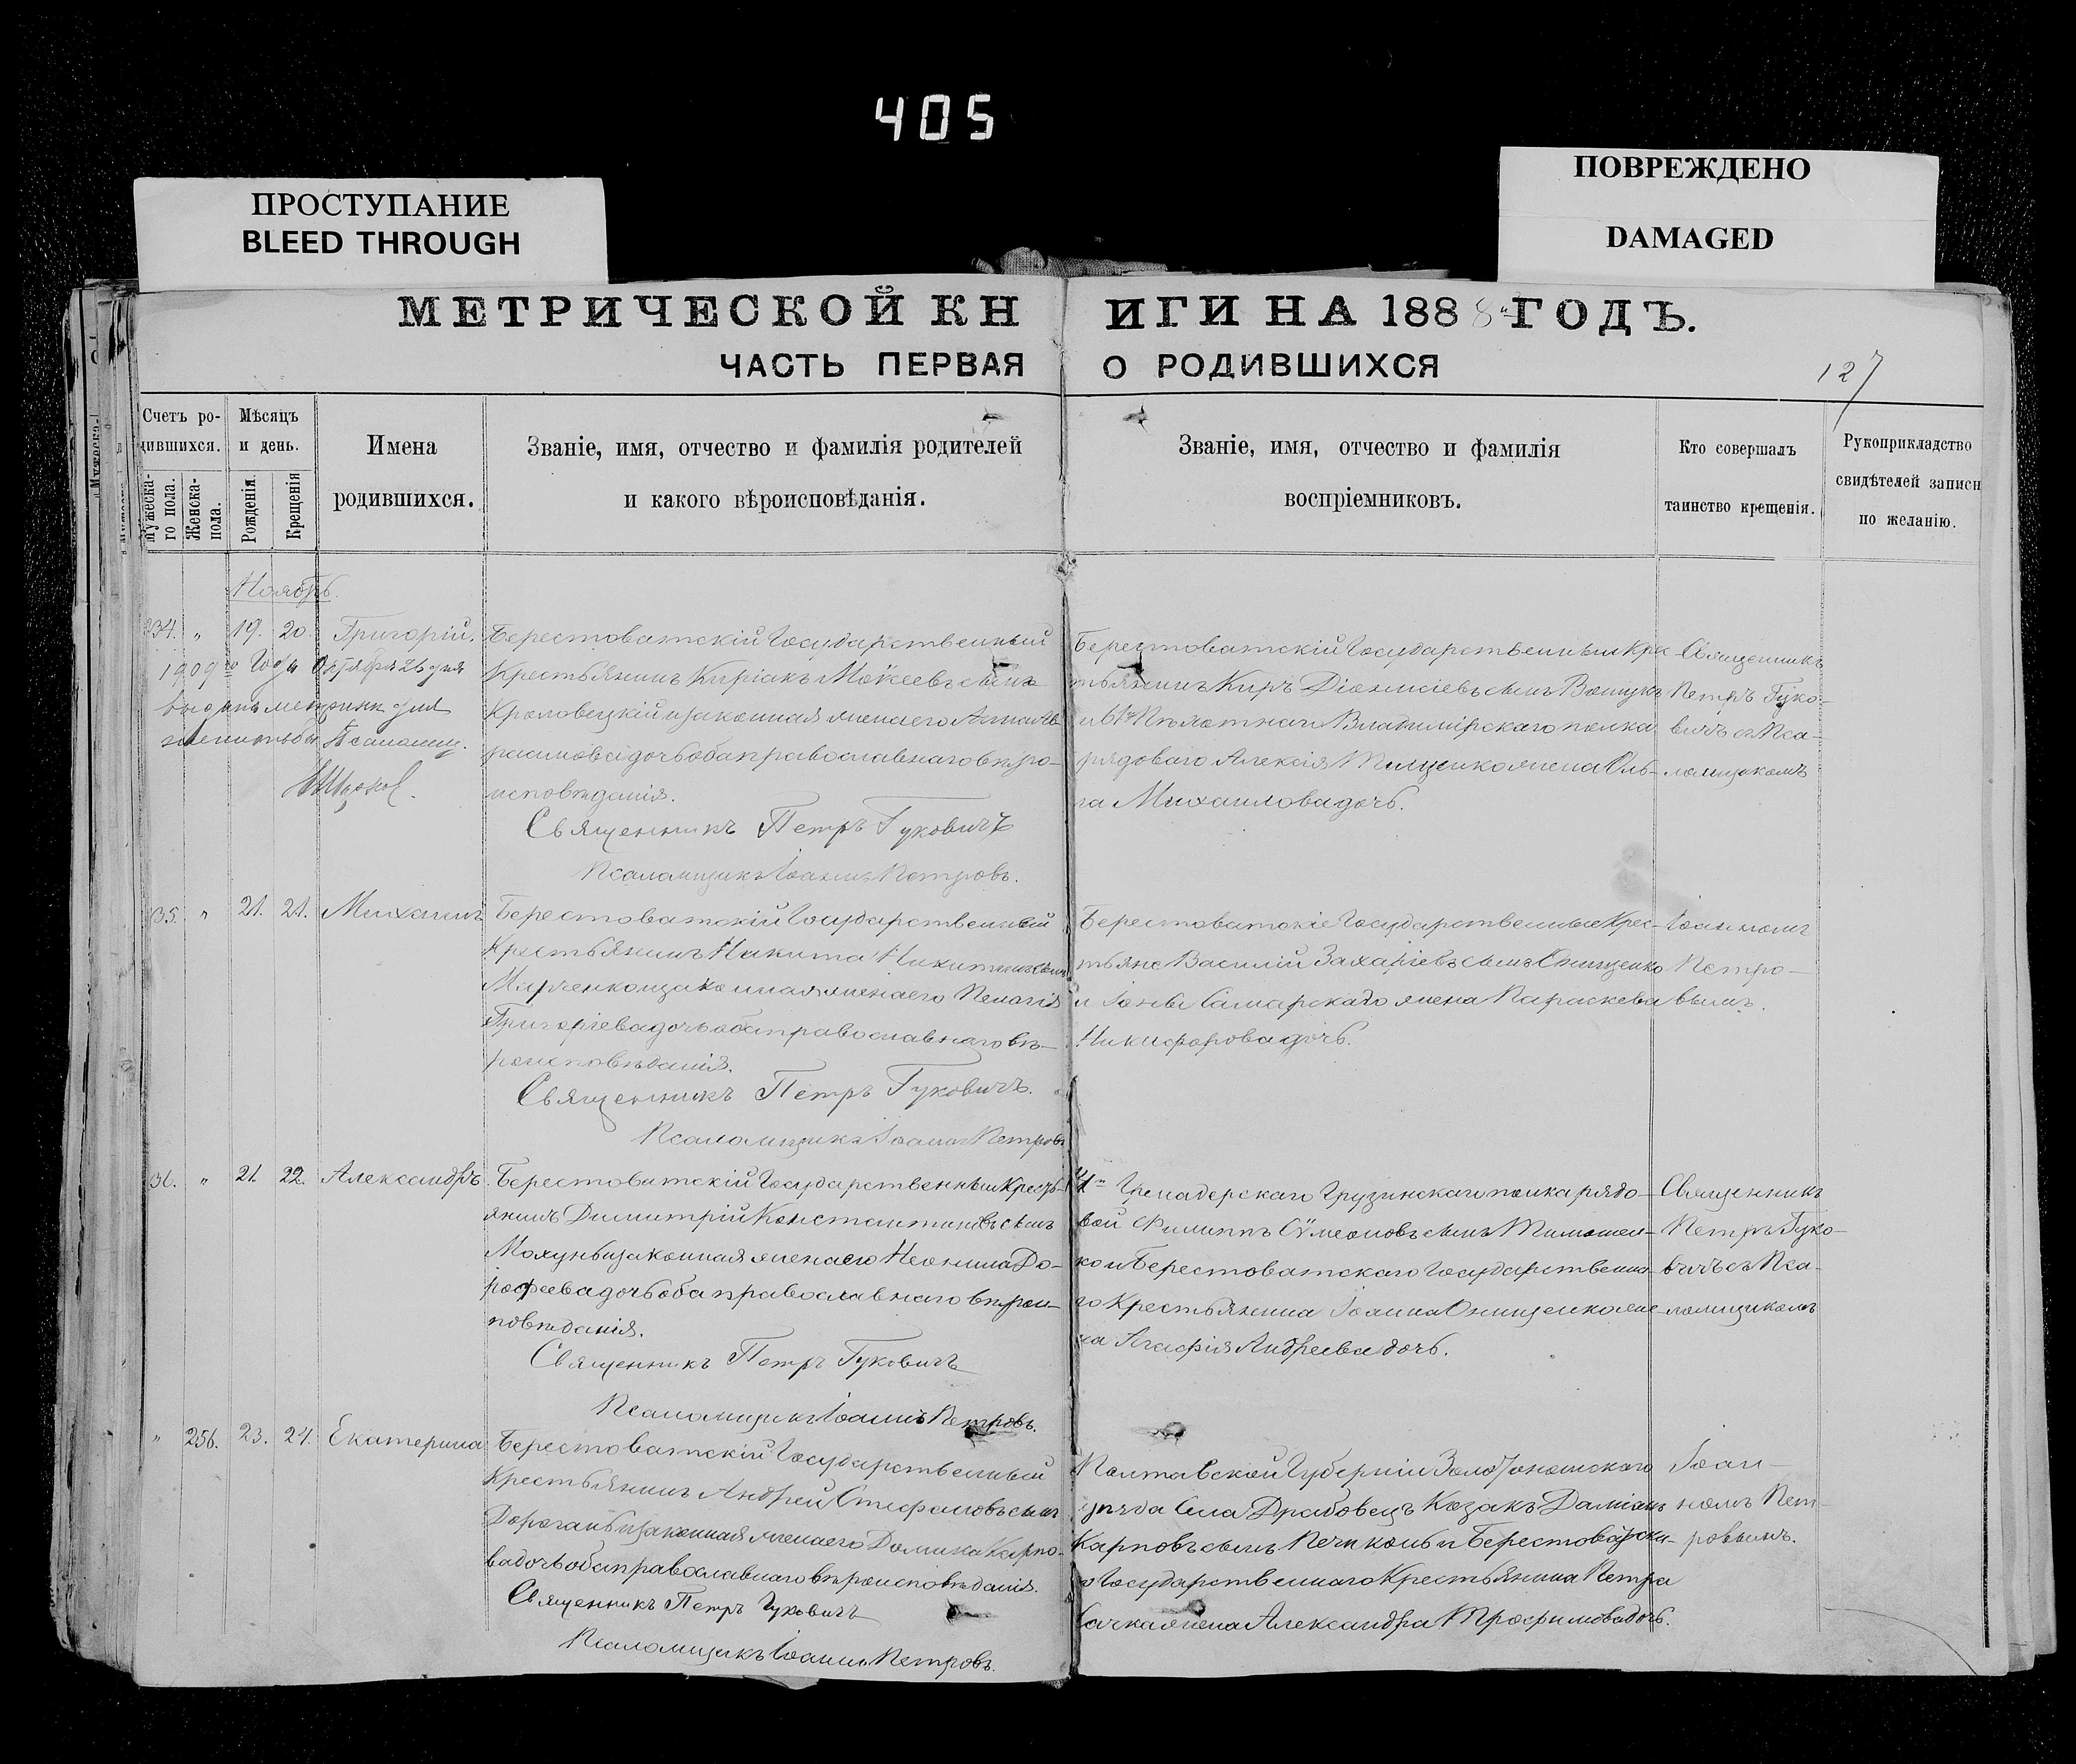 405
ПРОСТУПАНИЕ
BLEED THROUGH
ПОВРЕЖДЕНО
DAMAGED
МЕТРИЧЕСКОЙ КН ИГИ НА 1888 ГОДЪ.
ЧАСТЬ ПЕРВАЯ О РОДИВШИХСЯ
127
Счетъ ро-
дившихся.
Мужеска-
го пола.
Женска-
пола.
Мѣсяцъ
и день.
Рожденія.
Крещенія
Имена
родившихся.
Званіе, имя, отчество и фамилія родителей
и какого вѣроисповѣданія.
Званіе, имя, отчество и фамилія
воспріемниковъ.
Кто совершалъ
таинство крещенія.
Рукоприкладство
свидѣтелей записи
по желанію.
Ноябрь.
234. " 19. 20. Григорій.
1909го Года Октября 26 дня
Берестоватскій Государственный
Крестьянинъ Киріакъ Мокеевъ сынъ
Кроловецкій и законная жена его Анна
дочь оба православнаго вѣро-
исповѣданія.
Священникъ Петръ Гуковичъ
Псаломщикъ Іоаннъ Петровъ.
Берестоватскій Государственный Кре
стьянинъ Киръ Діонисіевъ сынъ
Пѣхотнаго Владимірскаго полка
рядоваго Алексія Тищенко жена Оль-
га Михаилова дочь.
Священникъ
Петръ Гуко-
вичъ съ Пса-
ломщикомъ
35. " 21. 21. Михаилъ
Берестоватскій Государственный
Крестьянинъ Никита Никитинъ сынъ
Марченко и законная жена его Пелагія
Григоріева дочь оба православнаго вѣ-
роисповѣданія.
Священникъ Петръ Гуковичъ.
Псаломщикъ Іоаннъ Петровъ
Берестоватскіе Государственные Крес-
тьяне Василій Захаріевъ сынъ Онищенко
и Іоны Самарскаго жена Параскева
Никифорова дочь.
Іоанномъ
Петро-
вымъ.
36. " 21. 22. Александръ
Берестоватскій Государственный Кресть-
янинъ Димитрій Константиновъ сынъ
и законная жена его Неонила До-
рофеева дочь оба православнаго вѣроис-
повѣданія.
Священникъ Петръ Гуковичъ
Псаломщикъ Іоаннъ Петровъ.
Гренадерскаго Грузинскаго полка рядо-
вой Филиппъ Сѵмеоновъ сынъ Тимошен-
ко и Берестоватскаго Государственна-
го Крестьянина Іоанна Онищенко же-
на Агафія Андреева дочь.
Священникъ
Петръ Гуко-
вичъ съ Пса-
ломщикомъ
" 256. 23. 24. Екатерина
Берестоватскій Государственный
Крестьянинъ Андрей Стефановъ сынъ
Дорогань и законная жена его Домника Карпо-
ва дочь оба православнаго вѣроисповѣданія.
Священникъ Петръ Гуковичъ
Псаломщикъ Іоаннъ Петровъ.
Полтавской Губерніи Золотоношскаго
уѣзда Села Драбовецъ Козакъ Даміанъ
Карповъ сынъ и Берестоватска-
го Государственнаго Крестьянина Петра
жена Александра Трофимова дочь.
Іоан-
номъ Пет-
ровымъ.